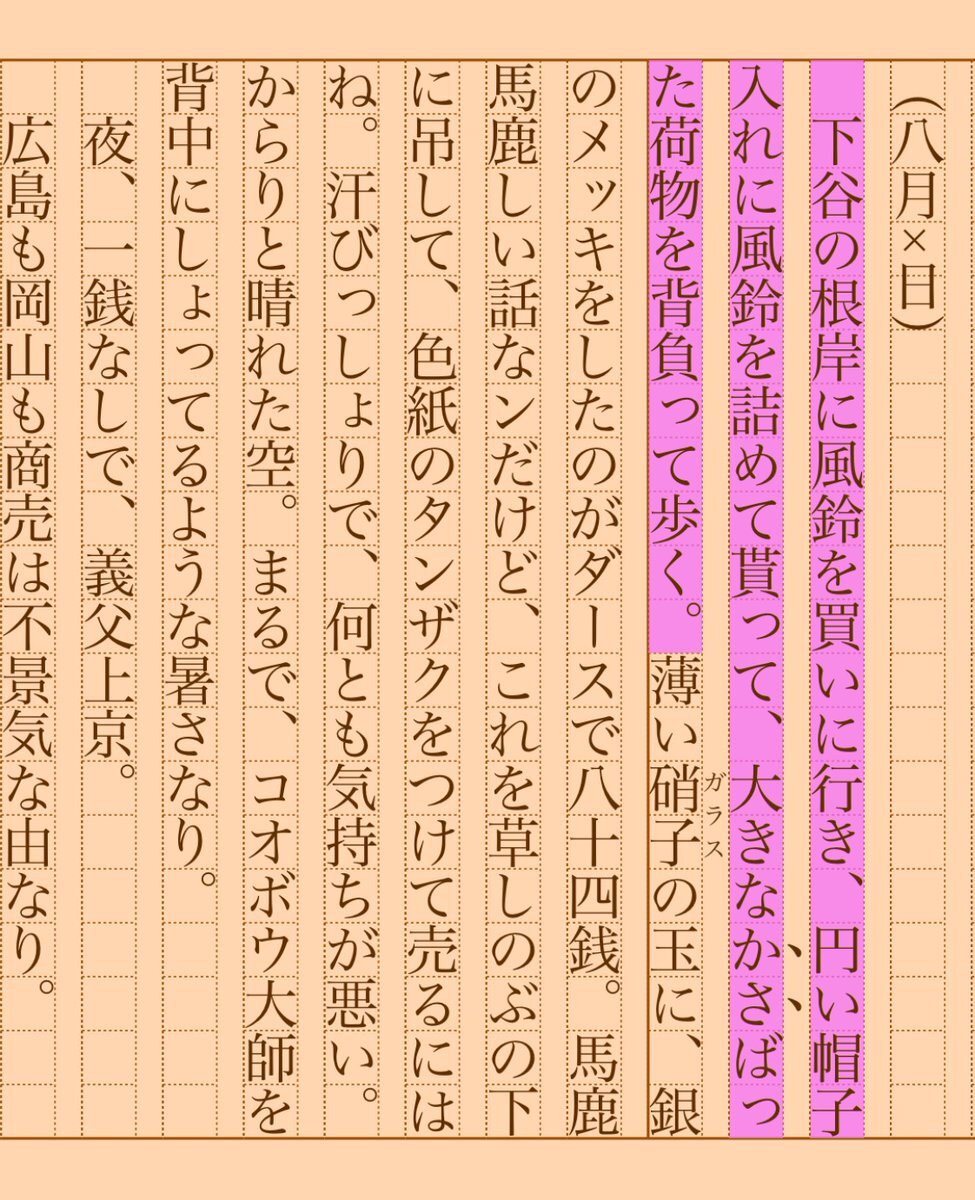 （八月×日）
　下谷の根岸に風鈴を買いに行き、円い帽子
入れに風鈴を詰めて貰って、大きなかさばっ
た荷物を背負って歩く。薄い硝子の玉に、銀
ガラス
のメッキをしたのがダースで八十四銭。馬鹿
馬鹿しい話なンだけど、これを草しのぶの下
に吊して、色紙のタンザクをつけて売るには
ね。汗びっしょりで、何とも気持ちが悪い。
からりと晴れた空。まるで、コオボウ大師を
背中にしょってるような暑さなり。
　夜、一銭なしで、義父上京。
　広島も岡山も商売は不景気な由なり。